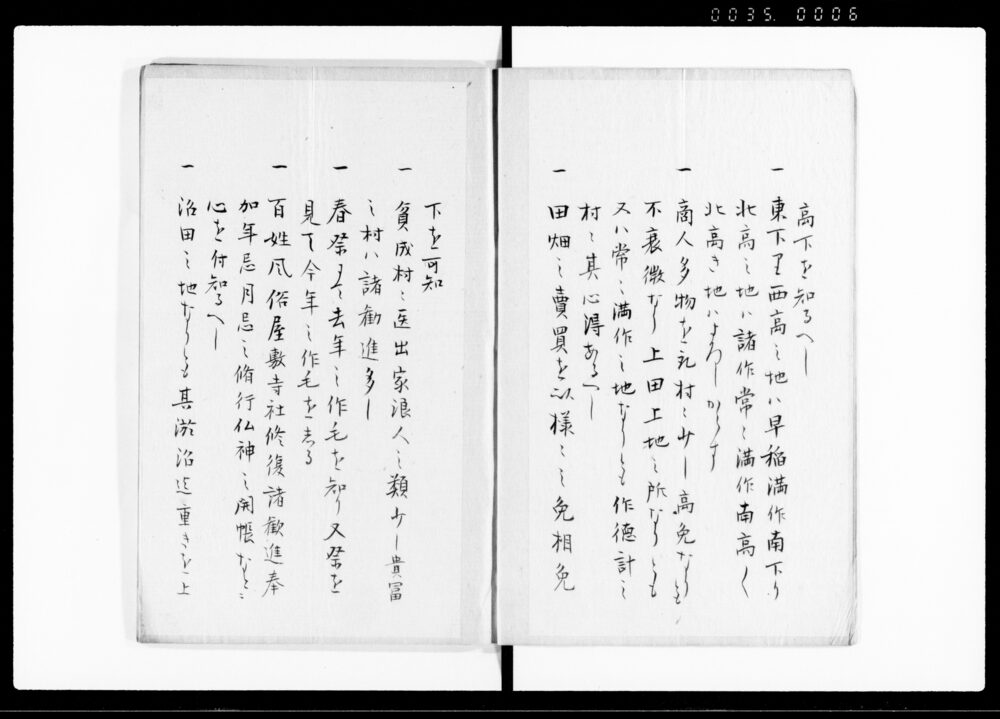 0035. 0006
高下を知るへし
一 東下り西高之地ハ早稲満作南下り
北高之地ハ諸作常ニ満作南高く
北高き地ハよろしからす
一 商人多物を売村ニ少し高免なりとも
不衰微なり上田上地之所なりとも
又ハ常ニ満作之地なりとも作徳計之
村ニ其心得あるへし
一 田畑之賣買を以様々之免相免
下を可知
一 貧成村ニ医出家浪人之類少し貴冨
之村ハ諸勧進多し
一 春祭りニ去年之作毛を知り又祭を
見て今年之作毛を志る
一 百姓風俗屋敷寺社修復諸歓進奉
加年忌月忌之脩行仏神之開帳なとニ
心を付知るへし
一 沼田之地なりとも其淤沼迄重きを上